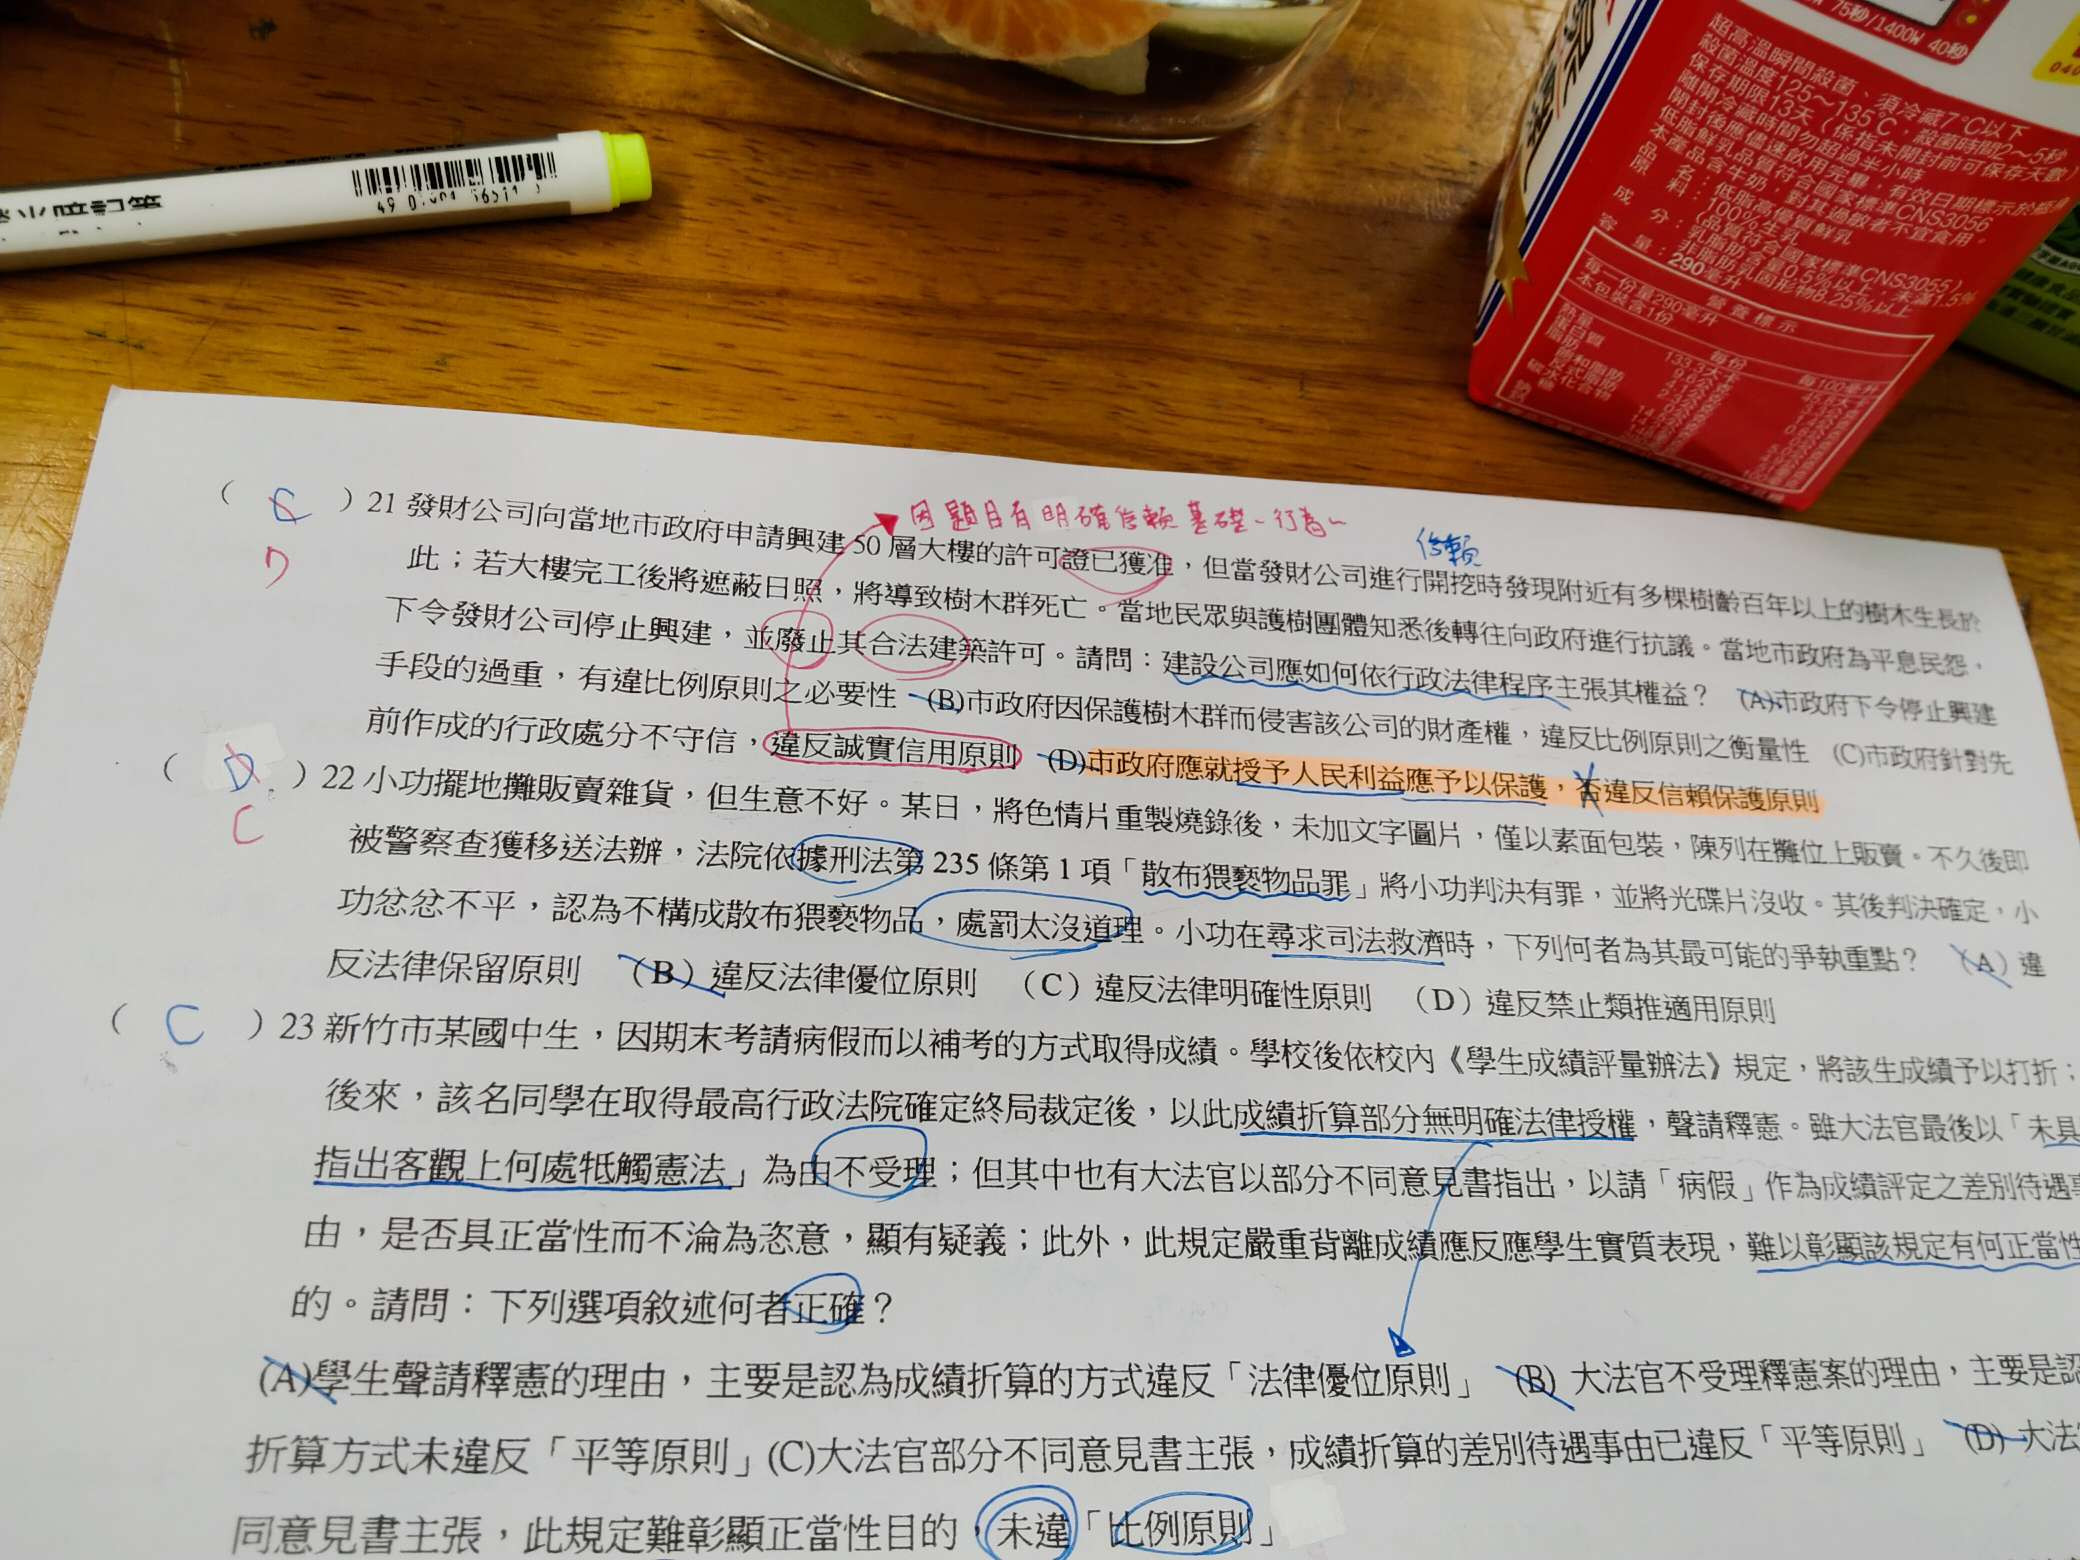 75秒/1400W 40秒
超高溫瞬間殺菌、須冷藏7°C以下
殺菌溫度125～135°C，殺菌時間2～5秒
保存期限13天(係指未開封前可保存天數)
離開冷藏時間勿超過半小時
開封後應儘速飲用完畢，有效日期標示於瓶身
低脂鮮乳品質符合國家標準CNS3056
本產品含牛奶，對其過敏者不宜食用。
品名：低脂高優質鮮乳
原料：100%生乳
(品質符合國家標準CNS3055)
成分：乳脂肪含量0.5%以上，未滿1.5%
非脂肪乳固形物8.25%以上
容量：290毫升
營養標示
每一份量290毫升
本包裝含1份
每份 每100毫升
因題目有明確信賴基礎、行為
信賴
( C )21 發財公司向當地市政府申請興建 50 層大樓的許可證已獲准，但當發財公司進行開挖時發現附近有多棵樹齡百年以上的樹木生長於
此；若大樓完工後將遮蔽日照，將導致樹木群死亡。當地民眾與護樹團體知悉後轉往向政府進行抗議。當地市政府為平息民怨，
下令發財公司停止興建，並廢止其合法建築許可。請問：建設公司應如何依行政法律程序主張其權益？ (A)市政府下令停止興建
手段的過重，有違比例原則之必要性 (B)市政府因保護樹木群而侵害該公司的財產權，違反比例原則之衡量性 (C)市政府針對先
前作成的行政處分不守信，違反誠實信用原則 (D)市政府應就授予人民利益應予以保護，否違反信賴保護原則
( D )22 小功擺地攤販賣雜貨，但生意不好。某日，將色情片重製燒錄後，未加文字圖片，僅以素面包裝，陳列在攤位上販賣。不久後即
C
被警察查獲移送法辦，法院依據刑法第 235 條第 1 項「散布猥褻物品罪」將小功判決有罪，並將光碟片沒收。其後判決確定，小
功忿忿不平，認為不構成散布猥褻物品，處罰太沒道理。小功在尋求司法救濟時，下列何者為其最可能的爭執重點？ (A) 違
反法律保留原則 (B) 違反法律優位原則 (C) 違反法律明確性原則 (D) 違反禁止類推適用原則
( C )23 新竹市某國中生，因期末考請病假而以補考的方式取得成績。學校後依校內《學生成績評量辦法》規定，將該生成績予以打折；
後來，該名同學在取得最高行政法院確定終局裁定後，以此成績折算部分無明確法律授權，聲請釋憲。雖大法官最後以「未具
指出客觀上何處牴觸憲法」為由不受理；但其中也有大法官以部分不同意見書指出，以請「病假」作為成績評定之差別待遇事
由，是否具正當性而不淪為恣意，顯有疑義；此外，此規定嚴重背離成績應反應學生實質表現，難以彰顯該規定有何正當性
的。請問：下列選項敘述何者正確？
(A)學生聲請釋憲的理由，主要是認為成績折算的方式違反「法律優位原則」 (B) 大法官不受理釋憲案的理由，主要是認
折算方式未違反「平等原則」(C)大法官部分不同意見書主張，成績折算的差別待遇事由已違反「平等原則」 (D) 大法
同意見書主張，此規定難彰顯正當性目的，未違「比例原則」